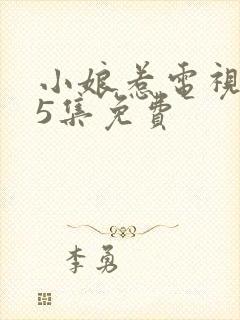 小娘惹電視
5集免費
李勇